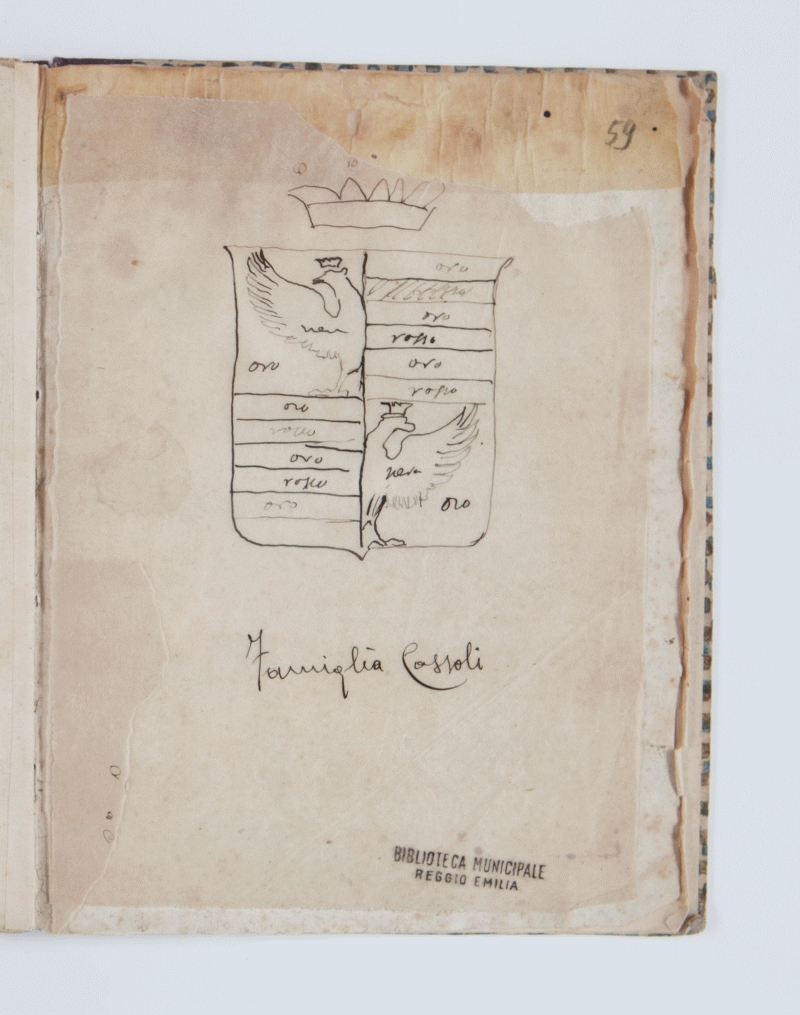 59
oro
oro
nera
rosso
oro
oro
rosso
oro
rosso
nera
oro
rosso
oro
oro
Famiglia Cassoli
BIBLIOTECA MUNICIPALE
REGGIO EMILIA